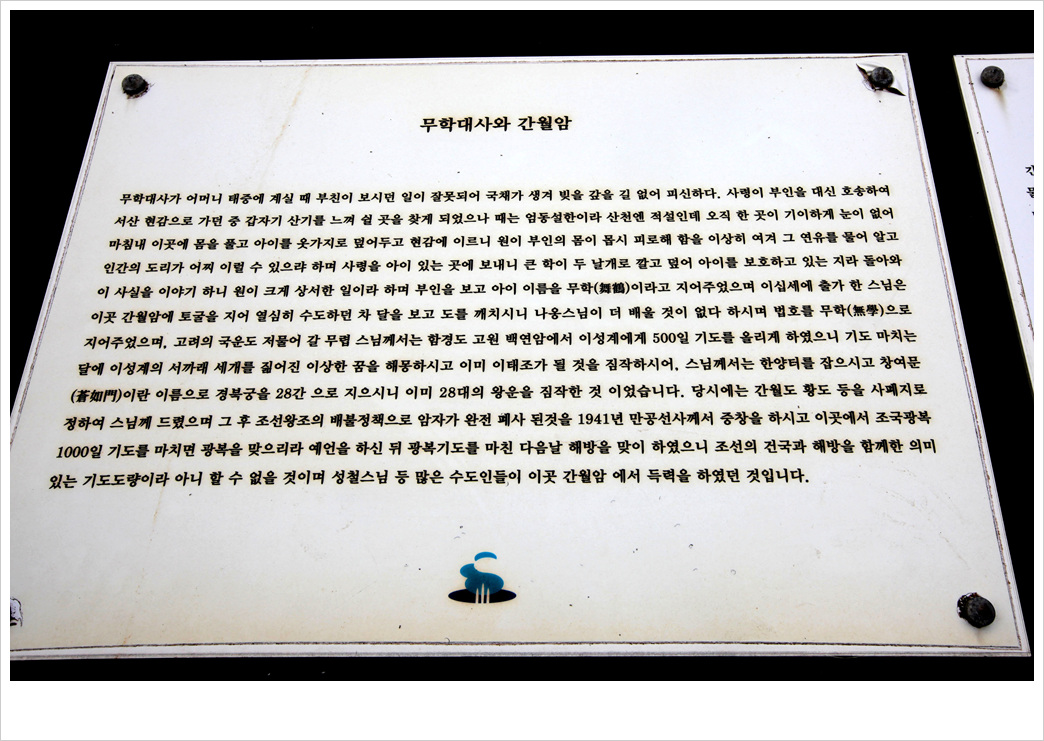 무학대사와 간월암
무학대사가 어머니 태중에 계실 때 부친이 보시던 일이 잘못되어 국채가 생겨 빚을 갚을 길 없어 피신하다. 사령이 부인을 대신 호송하여
서산 현감으로 가던 중 갑자기 산기를 느껴 쉴 곳을 찾게 되었으나 때는 엄동설한이라 산천엔 적설인데 오직 한 곳이 기이하게 눈이 없어
마침내 이곳에 몸을 풀고 아이를 옷가지로 덮어두고 현감에 이르니 원이 부인의 몸이 몹시 피로해 함을 이상히 여겨 그 연유를 물어 알고
인간의 도리가 어찌 이럴 수 있으랴 하며 사령을 아이 있는 곳에 보내니 큰 학이 두 날개로 깔고 덮어 아이를 보호하고 있는 지라 돌아와
이 사실을 이야기 하니 원이 크게 상서한 일이라 하며 부인을 보고 아이 이름을 무학(舞鶴)이라고 지어주었으며 이십세에 출가 한 스님은
이곳 간월암에 토굴을 지어 열심히 수도하던 차 달을 보고 도를 깨치시니 나옹스님이 더 배울 것이 없다 하시며 법호를 무학(無學)으로
지어주었으며, 고려의 국운도 저물어 갈 무렵 스님께서는 함경도 고원 백연암에서 이성계에게 500일 기도를 올리게 하였으니 기도 마치는
달에 이성계의 서까래 세개를 짊어진 이상한 꿈을 해몽하시고 이미 이태조가 될 것을 짐작하시어, 스님께서는 한양터를 잡으시고 창여문
(蒼如門)이란 이름으로 경복궁을 28간 으로 지으시니 이미 28대의 왕운을 짐작한 것 이었습니다. 당시에는 간월도 황도 등을 사패지로
정하여 스님께 드렸으며 그 후 조선왕조의 배불정책으로 암자가 완전 폐사 된것을 1941년 만공선사께서 중창을 하시고 이곳에서 조국광복
1000일 기도를 마치면 광복을 맞으리라 예언을 하신 뒤 광복기도를 마친 다음날 해방을 맞이 하였으니 조선의 건국과 해방을 함께한 의미
있는 기도도량이라 아니 할 수 없을 것이며 성철스님 등 많은 수도인들이 이곳 간월암 에서 득력을 하였던 것입니다.